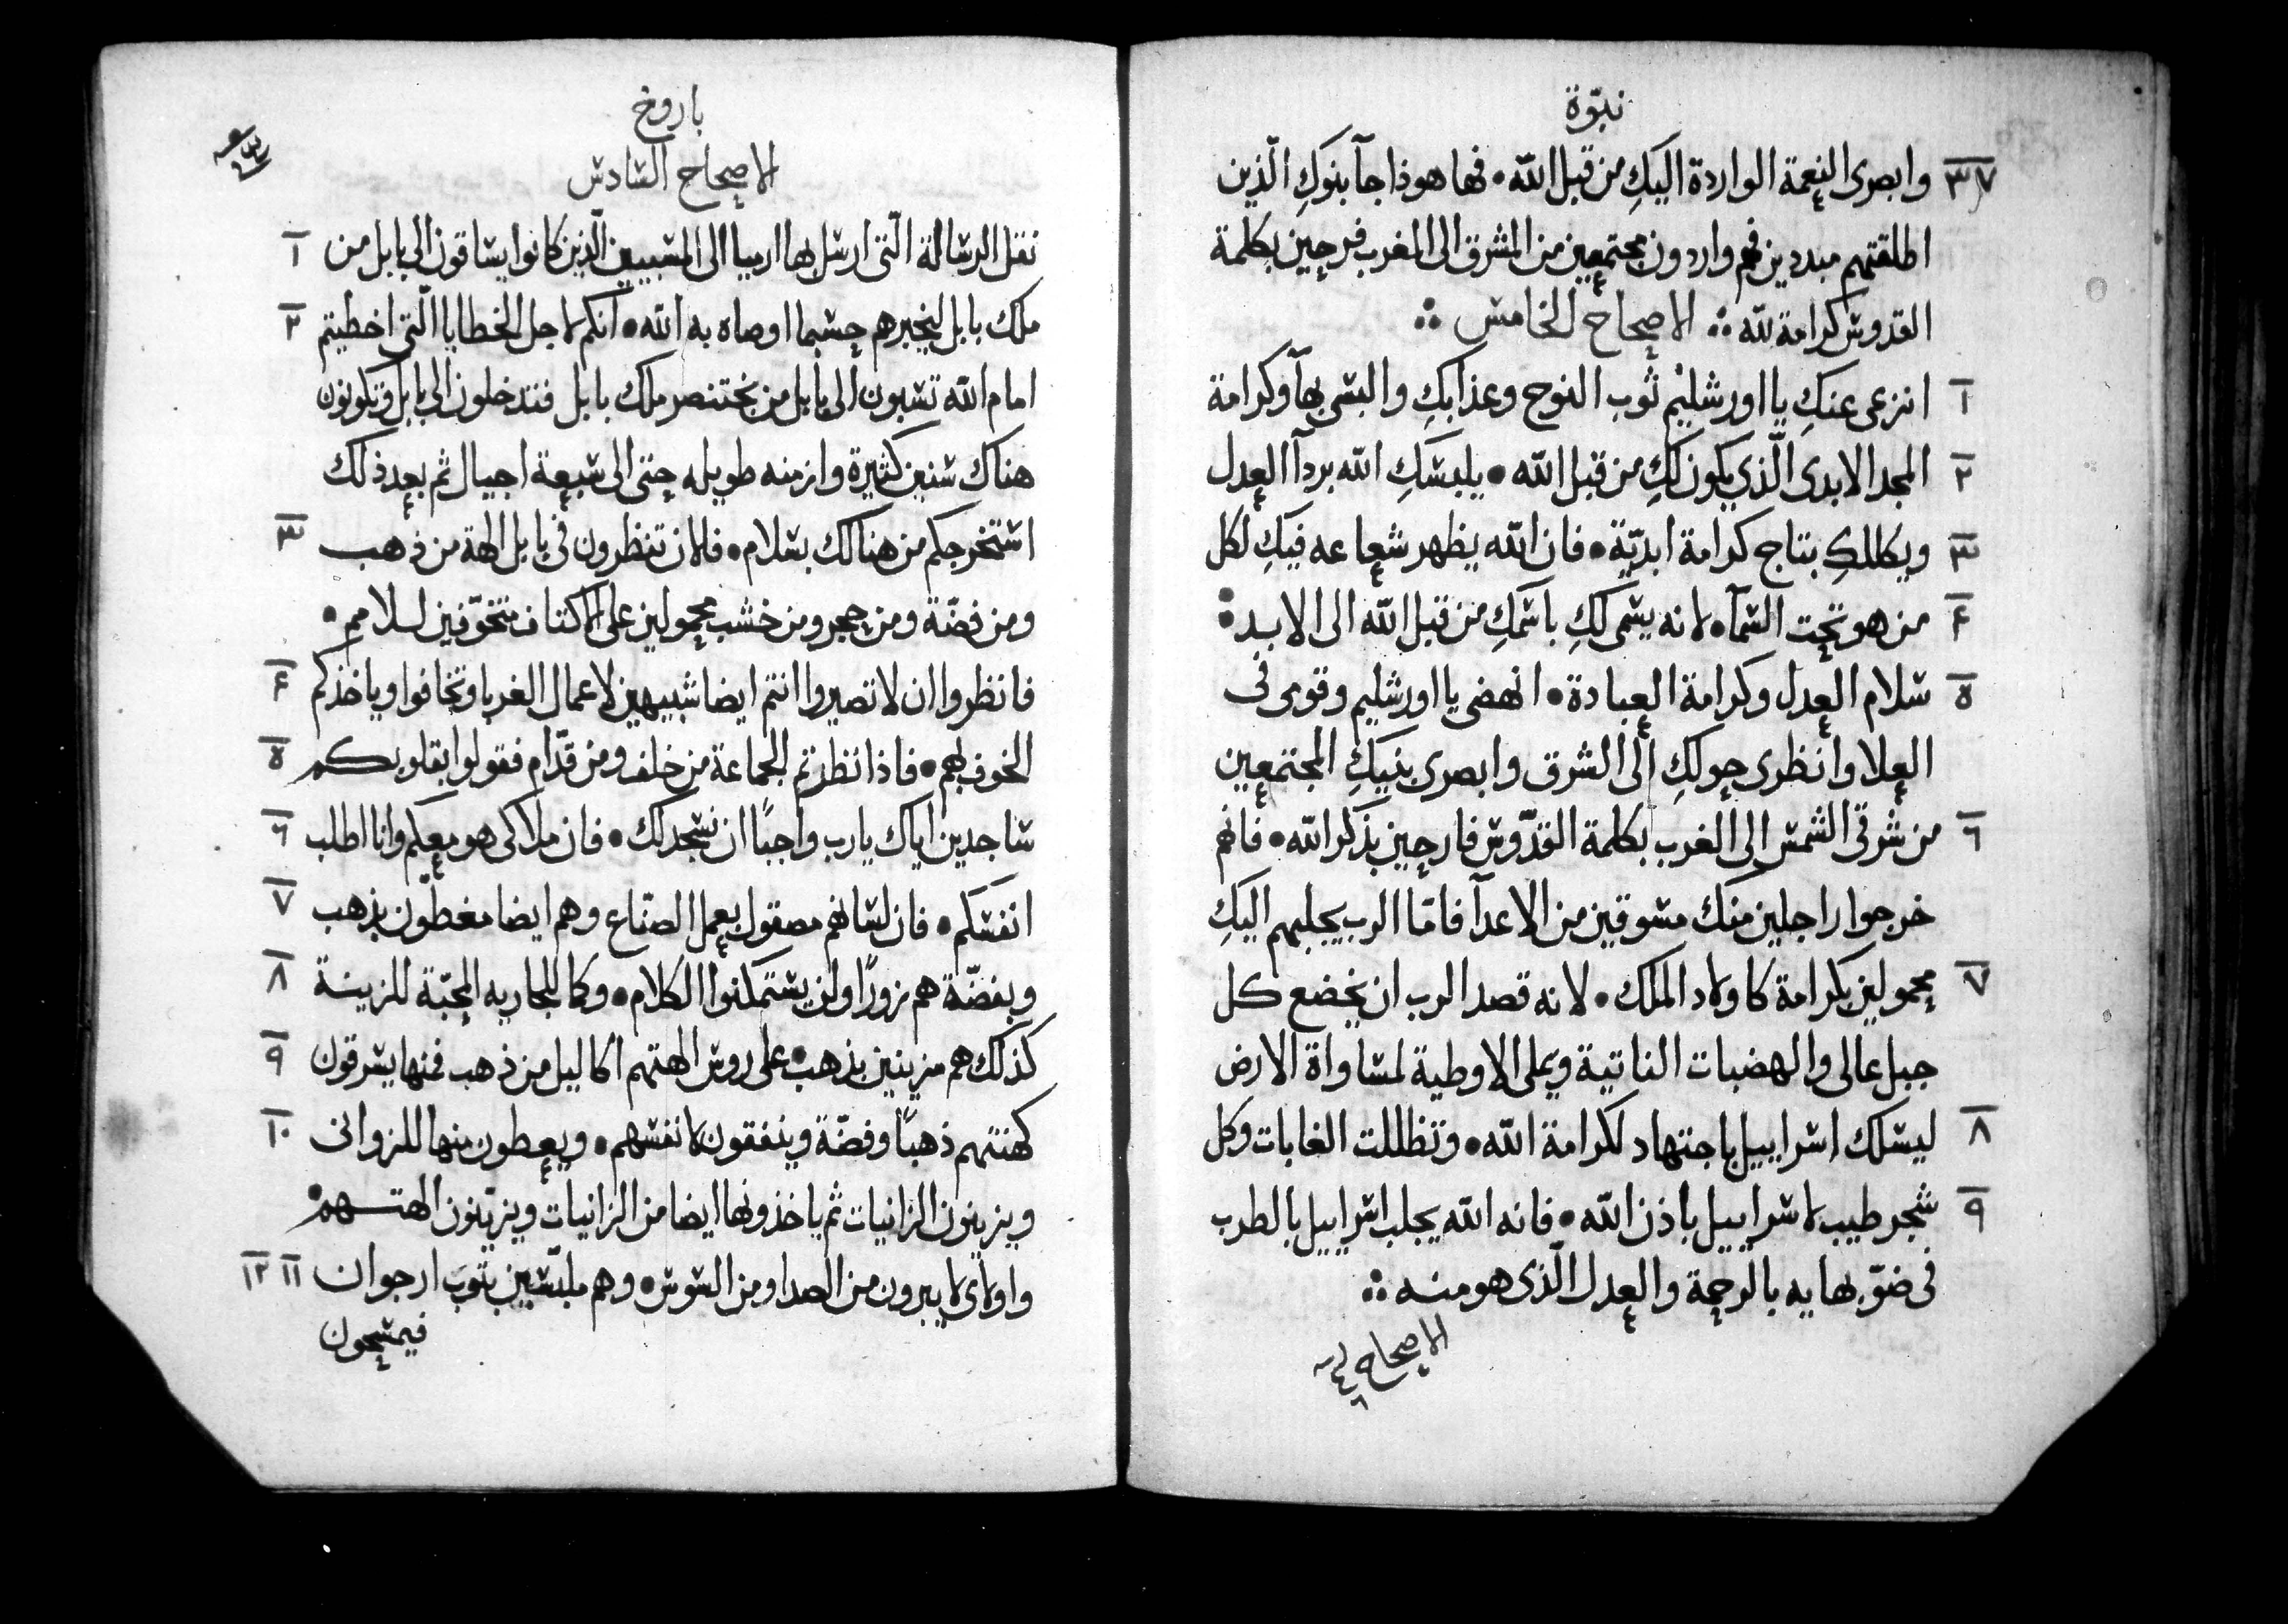 نبوّة
٣٧ وابصرى النعمة الواردة اليكِ من قبل الله • فها هوذا جآ بنوكِ الّذين
اطلقتهم مبددين فهم واردون مجتمعين من المشرق الى المغرب فرحين بكلمة
القدوس كرامة لله ∴ الاصحاح الخامس ∴
١ انزعى عنكِ يا اورشليم ثوب النوح وعذابكِ والبسى بهآ وكرامة
٢ المجد الابدى الّذي يكون لكِ من قبل الله • يلبسكِ الله بردآ العدل
٣ ويكللكِ بتاج كرامة ابديّة • فان الله يظهر شعاعه فيكِ لكل
۴ من هو تحت السّمآ • لانه يسمى لكِ باسمكِ من قبل الله الى الابد :
٥ سلام العدل وكرامة العبادة • انهضى يا اورشليم وقومى فى
العلا وانظرى حولكِ الى الشرق وابصرى بنيكِ المجتمعين
٦ من شرقى الشمس الى الغرب بكلمة القدّوس فارحين بذكر الله • فانهم
خرجوا راجلين منك مسوقين من الاعدآ فامّا الرب يجلبهم اليكِ
٧ محمولين بكرامة كاولاد الملك • لانه قصد الرب ان يخضع كل
جبل عالى والهضبات الناتية ويملى الاوطية لمساواة الارض
٨ ليسلك اسراييل باجتهاد لكرامة الله • وتظللت الغابات وكل
٩ شجر طيب لاسراييل باذن الله • فانه الله يجلب اسراييل بالطرب
فى ضوّ بهايه بالرحمة والعدل الّذى هو منه ∴
الاصحاح
باروخ
الاصحاح السّادس
١ نقل الرسالة الّتى ارسل بها ارميا الى المسبيين الّذين كانوا يساقون الى بابل من
٢ ملك بابل ليخبرهم حسبما اوصاه به الله • انكم لاجل الخطايا الّتى اخطيتم
امام الله تسبون الى بابل من بختنصر ملك بابل فتدخلون الى بابل وتكونون
هناك سنين كثيرة وازمنه طويله حتى الى سبعة اجيال ثم بعد ذلك
٣ استخرجكم من هنالك بسلام • فلان تنظرون فى بابل الهة من ذهب
ومن فضّة ومن حجر ومن خشب محمولين على الاكتاف متخوّفين لسلامم •
۴ فانظروا ان لا تصيروا انتم ايضا شبيهين لاعمال الغربا وتخافوا وياخذكم
٥ الخوف بهم • فاذا نظرتم الجماعة من خلف ومن قدّام فقولوا بقلوبكم
٦ ساجدين اياك يا رب واجبًا ان نسجد لك • فان ملاكى هو معكم وانا اطلب
٧ انفسكم • فان لسانهم مصقول بعمل الصنّاع وهم ايضا مغطّون بذهب
٨ وبفضّة هم زورًا ولن يستمكنوا الكلام • وكما للجاريه المحبّة للزينة
٩ كذلك هم مزينين بذهب • على روس الهتهم اكاليل من ذهب فمنها يسرقون
١٠ كهنتهم ذهبًا وفضّة وينفقون لانفسهم • ويعطون منها للزوانى
ويزينون الزانيات ثم ياخذونها ايضا من الزانيات ويزيّنون الهتهم •
١١ ١٢ واولاى لا يبرون من الصدا ومن السّوس • وهم ملبّسين بثوب ارجوان
فيمسحون